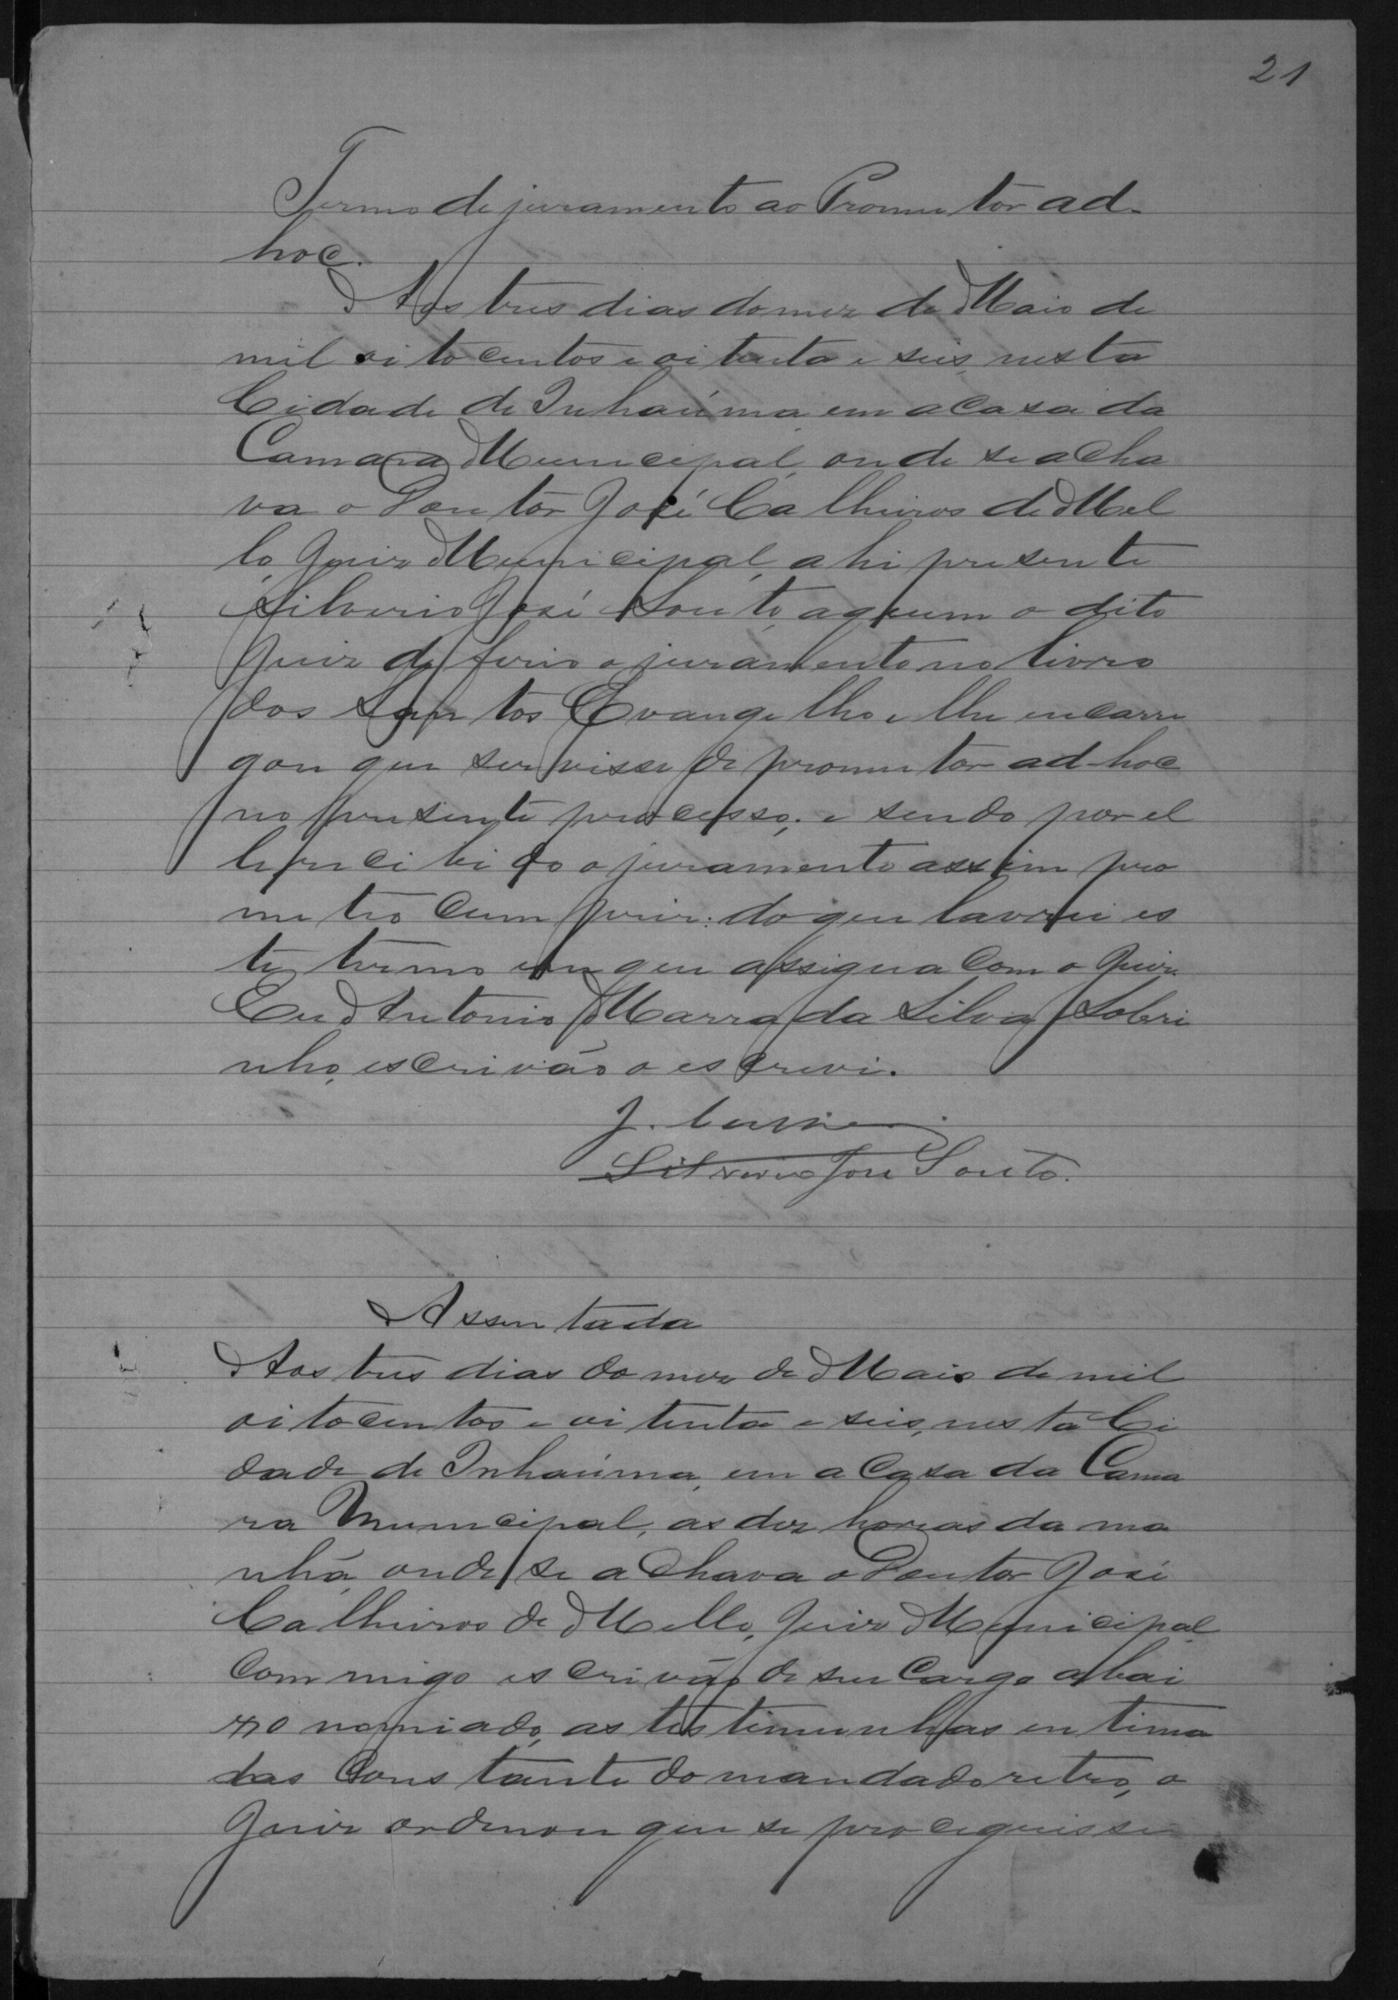 21
Termo de juramento ao Promutor ad-
hoc.
Aos tres dias do mez de Maio de
mil oitocentos e oitenta e seis, nesta
Cidade de Inhaúma em a casa da
Camara Municipal, onde se acha
va o Doutor José Calheiros de Mel
lo, Juiz Municipal, ahi presente
Silverio José Souto, a quem o dito
Juiz deferio o juramento no livro
dos Santos Evangelho e lhe encarre
gou que servisse de promutor ad-hoc
no presente processo; e sendo por el
le recibido o juramento assim pro
metteo cumprir: do que lavrei es
te termo em que assigna com o Juiz
Eu Antonio Marra da Silva Sobri
nho, escrivão o escrevi.
J.
Silverio José Souto.
Assentada
Aos tres dias do mez de Maio de mil
oitocentos e oitenta e seis, nesta Ci
dade de Inhaúma, em a casa da Cama
ra Municipal, as dez horeas da ma
nhã, onde se achava o Doutor José
Calheiros de Mello, Juiz Municipal
commigo escrivão de seu cargo abai
xo nomiado, as testimunhas entima
das constante do mandado retro, o
Juiz ordenou que se proceguisse